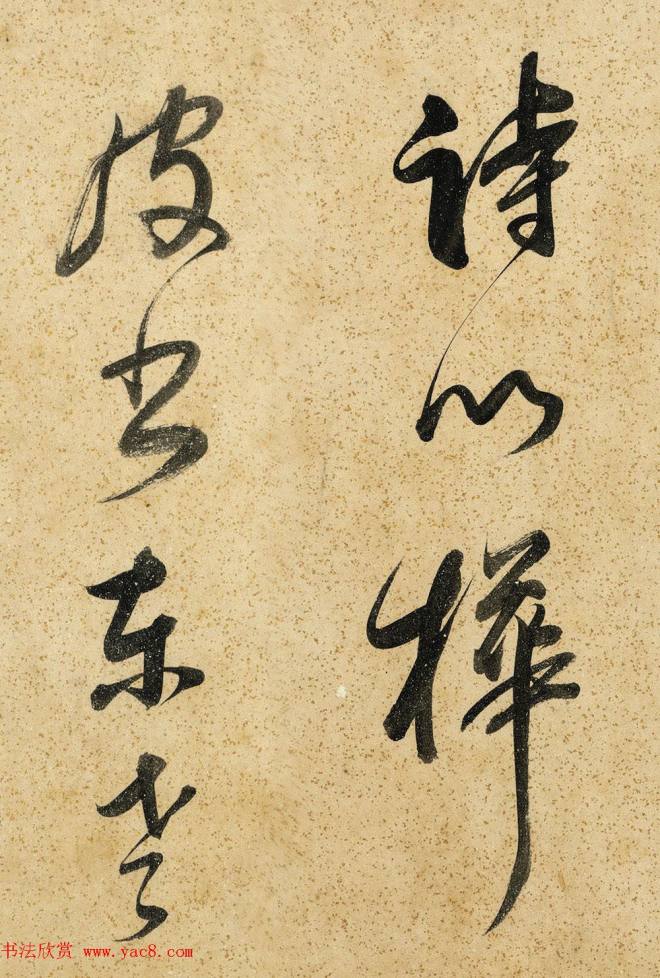 詩以樺
皮書東老
书法欣赏 www.yac8.com